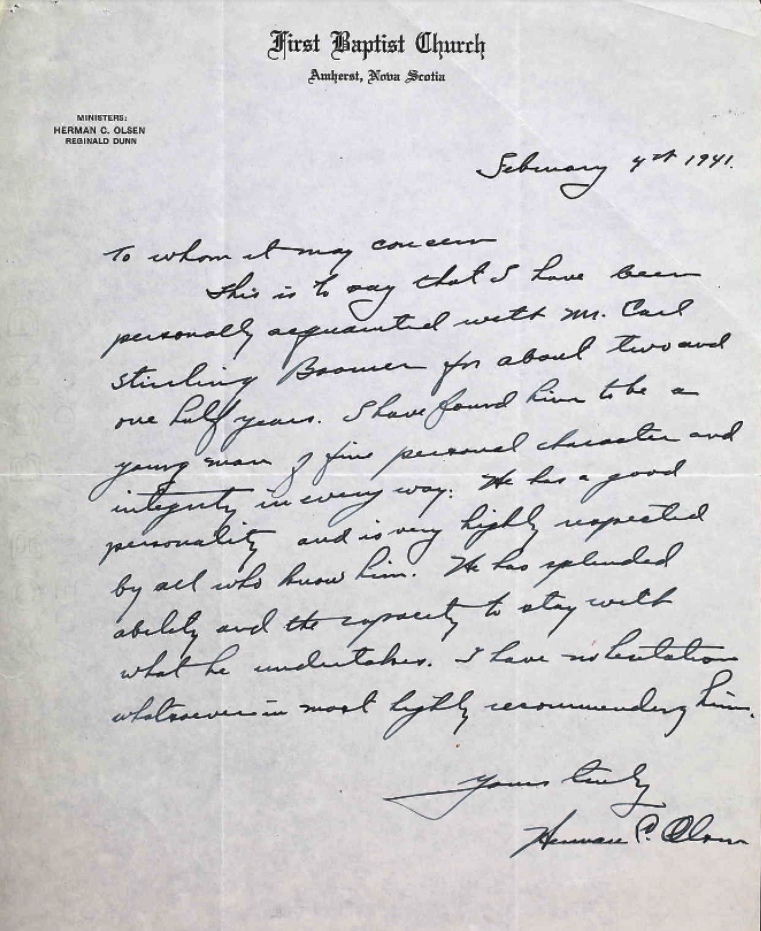 First Baptist Church
Amherst, Nova Scotia
MINISTERS:
HERMAN C. OLSEN
REGINALD DUNN
February 4th 1941.
To whom it may concern
This is to say that I have been
personally acquainted with Mr. Carl
Stirling Boomer for about two and
one half years. I have found him to be a
young man of fine personal character and
integrity in every way. He has a good
personality and is very highly respected
by all who know him. He has splendid
ability and the capacity to stay with
what he undertakes. I have no hesitation
whatsoever in most highly recommending him.
Yours truly
Herman C. Olsen